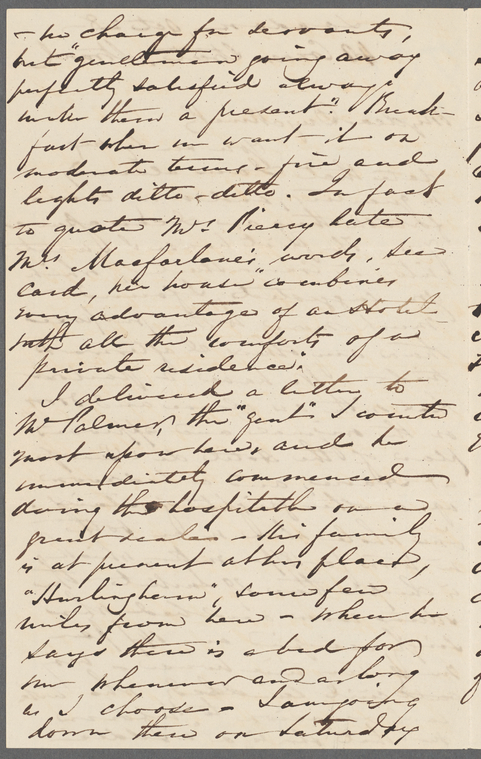 - no charge for servants,
but "gentlemen going away
perfectly satisfied always
make them a present". Break-
fast when we want it on
moderate terms - fire and
lights ditto - ditto. In fact
to quote Mrs Piercy late
Mrs Macfarlane's words, see
card, her house "combines
every advantage of an Hotel
with all the comforts of a
private residence".
I delivered a letter to
Mr Palmer, the "gent" I counted
most upon here, and he
immediately commenced
doing the hospitable on a
great scale - His family
is at present at his place,
"Hurlingham", some few
miles from here - where he
says there is a bed for
me whenever and as long
as I choose - I am going
down there on Saturday